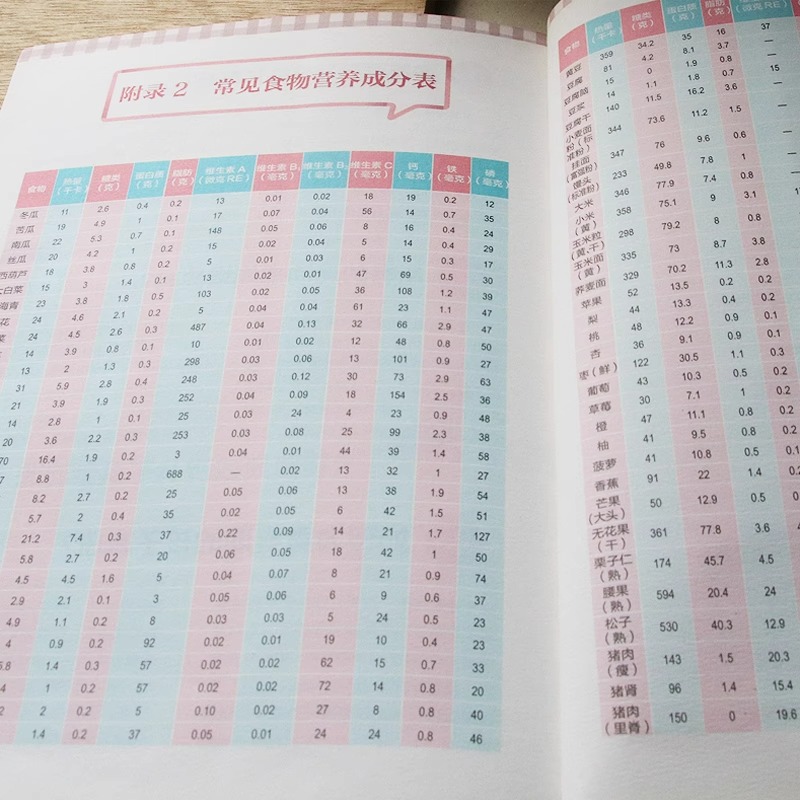 附录2 常见食物营养成分表
食物 热量（千卡） 糖类（克） 蛋白质（克） 脂肪（克） 维生素A（微克RE） 维生素B₁（毫克） 维生素B₂（毫克） 维生素C（毫克） 钙（毫克） 铁（毫克） 磷（毫克）
冬瓜 11 2.6 0.4 0.2 13 0.01 0.02 18 19 0.2 12
苦瓜 19 4.9 1 0.1 17 0.07 0.04 56 14 0.7 35
南瓜 22 5.3 0.7 0.1 148 0.05 0.06 8 16 0.4 24
丝瓜 20 4.2 1 0.2 15 0.02 0.04 5 14 0.4 29
西葫芦 18 3.8 0.8 0.2 5 0.01 0.03 6 15 0.3 17
大白菜 15 3 1.4 0.1 13 0.02 0.01 47 69 0.5 30
海青 23 3.8 1.8 0.5 103 0.02 0.05 36 108 1.2 39
花 24 4.6 2.1 0.2 5 0.04 0.04 61 23 1.1 47
菜 24 4.5 2.6 0.3 487 0.04 0.13 32 66 2.9 47
14 3.9 0.8 0.1 10 0.01 0.02 12 48 0.8 50
13 2 1.3 0.3 298 0.03 0.06 13 101 0.9 27
31 5.9 2.8 0.4 248 0.03 0.12 30 73 2.9 63
21 3.9 1.9 0.3 252 0.04 0.09 18 154 2.5 36
14 2.8 1 0.1 25 0.03 24 4 23 0.9 48
20 3.6 2.2 0.3 253 0.03 0.08 25 99 2.3 38
70 16.4 1.9 0.2 3 0.04 0.01 44 39 1.4 58
8.8 1 0.2 688 — 0.02 13 32 1 27
8.2 2.7 0.2 25 0.05 0.06 13 38 1.9 54
5.7 2 0.4 35 0.02 0.05 6 42 1.5 51
21.2 7.4 0.3 37 0.22 0.09 14 21 1.7 127
5.8 2.7 0.2 20 0.06 0.05 18 42 1 50
4.5 4.5 1.6 5 0.04 0.07 8 21 0.9 74
2.9 2.1 0.1 3 0.05 0.06 6 9 0.6 37
4.9 1.1 0.2 8 0.03 0.03 5 24 0.5 23
4 0.9 0.2 92 0.02 0.01 19 10 0.4 23
5.8 1.4 0.3 57 0.02 0.02 62 15 0.7 33
4 1 0.2 57 0.02 0.02 72 14 0.8 20
2 0.2 5 0.10 0.02 27 8 0.8 40
1.4 0.2 37 0.05 0.01 24 24 0.8 46
食物 热量（千卡） 糖类（克） 蛋白质（克） 脂肪（克） 维生素A（微克RE）
黄豆 359 34.2 35 16 37
豆腐 81 4.2 8.1 3.7 —
豆腐脑 15 0 1.9 0.8 —
豆浆 14 1.1 1.8 0.7 15
豆腐干 140 11.5 16.2 3.6 —
小麦面粉（标准粉） 344 73.6 11.2 1.5 —
挂面（富强粉） 347 76 9.6 0.6 —
馒头（标准粉） 233 49.8 7.8 1 —
大米 346 77.9 7.4 0.8
小米（黄） 358 75.1 9 3.1
玉米粒（黄、干） 298 79.2 8 0.8
玉米面（黄） 335 73 8.7 3.8
荞麦面 329 70.2 11.3 2.8
苹果 52 13.5 0.2 0.2
梨 44 13.3 0.4 0.2
桃 48 12.2 0.9 0.1
杏 36 9.1 0.9 0.1
枣（鲜） 122 30.5 1.1 0.3
葡萄 43 10.3 0.5 0.2
草莓 30 7.1 1 0.2
橙 47 11.1 0.8 0.2
柚 41 9.5 0.8 0.2
菠萝 41 10.8 0.5 0.1
香蕉 91 22 1.4 0.2
芒果（大头） 50 12.9 0.5
无花果（干） 361 77.8 3.6
栗子仁（熟） 174 45.7 4.5
腰果（熟） 594 20.4 24
松子（熟） 530 40.3 12.9
猪肉（瘦） 143 1.5 20.3
猪肾 96 1.4 15.4
猪肉（里脊） 150 0 19.6